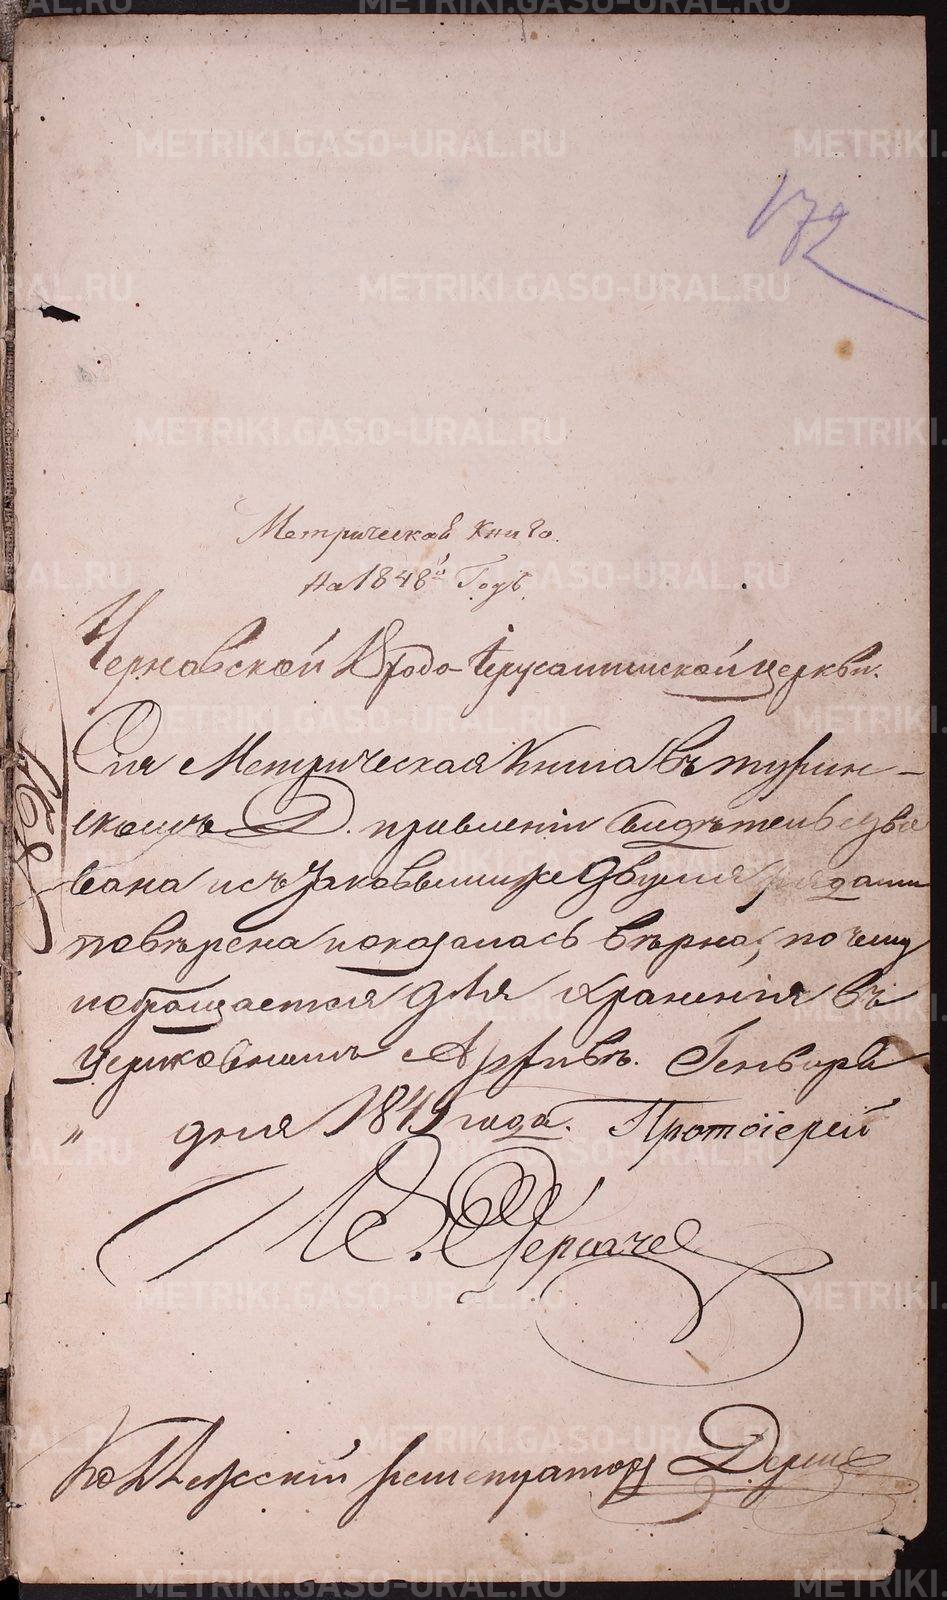 172
Метрическая книга
На 1848й Годъ.
Черновской Входо-Іерусалимской церкви.
Сія Метрическая Книга въ турин-
скомъ Д. правленіи свидѣтельство
вана и съ таковымиже двумя
повѣрена показалась вѣрна, почему
и обращается для храненія въ
церковномъ Архивѣ. Генваря
" дня 1849 года. Протоіерей
Коллежскій